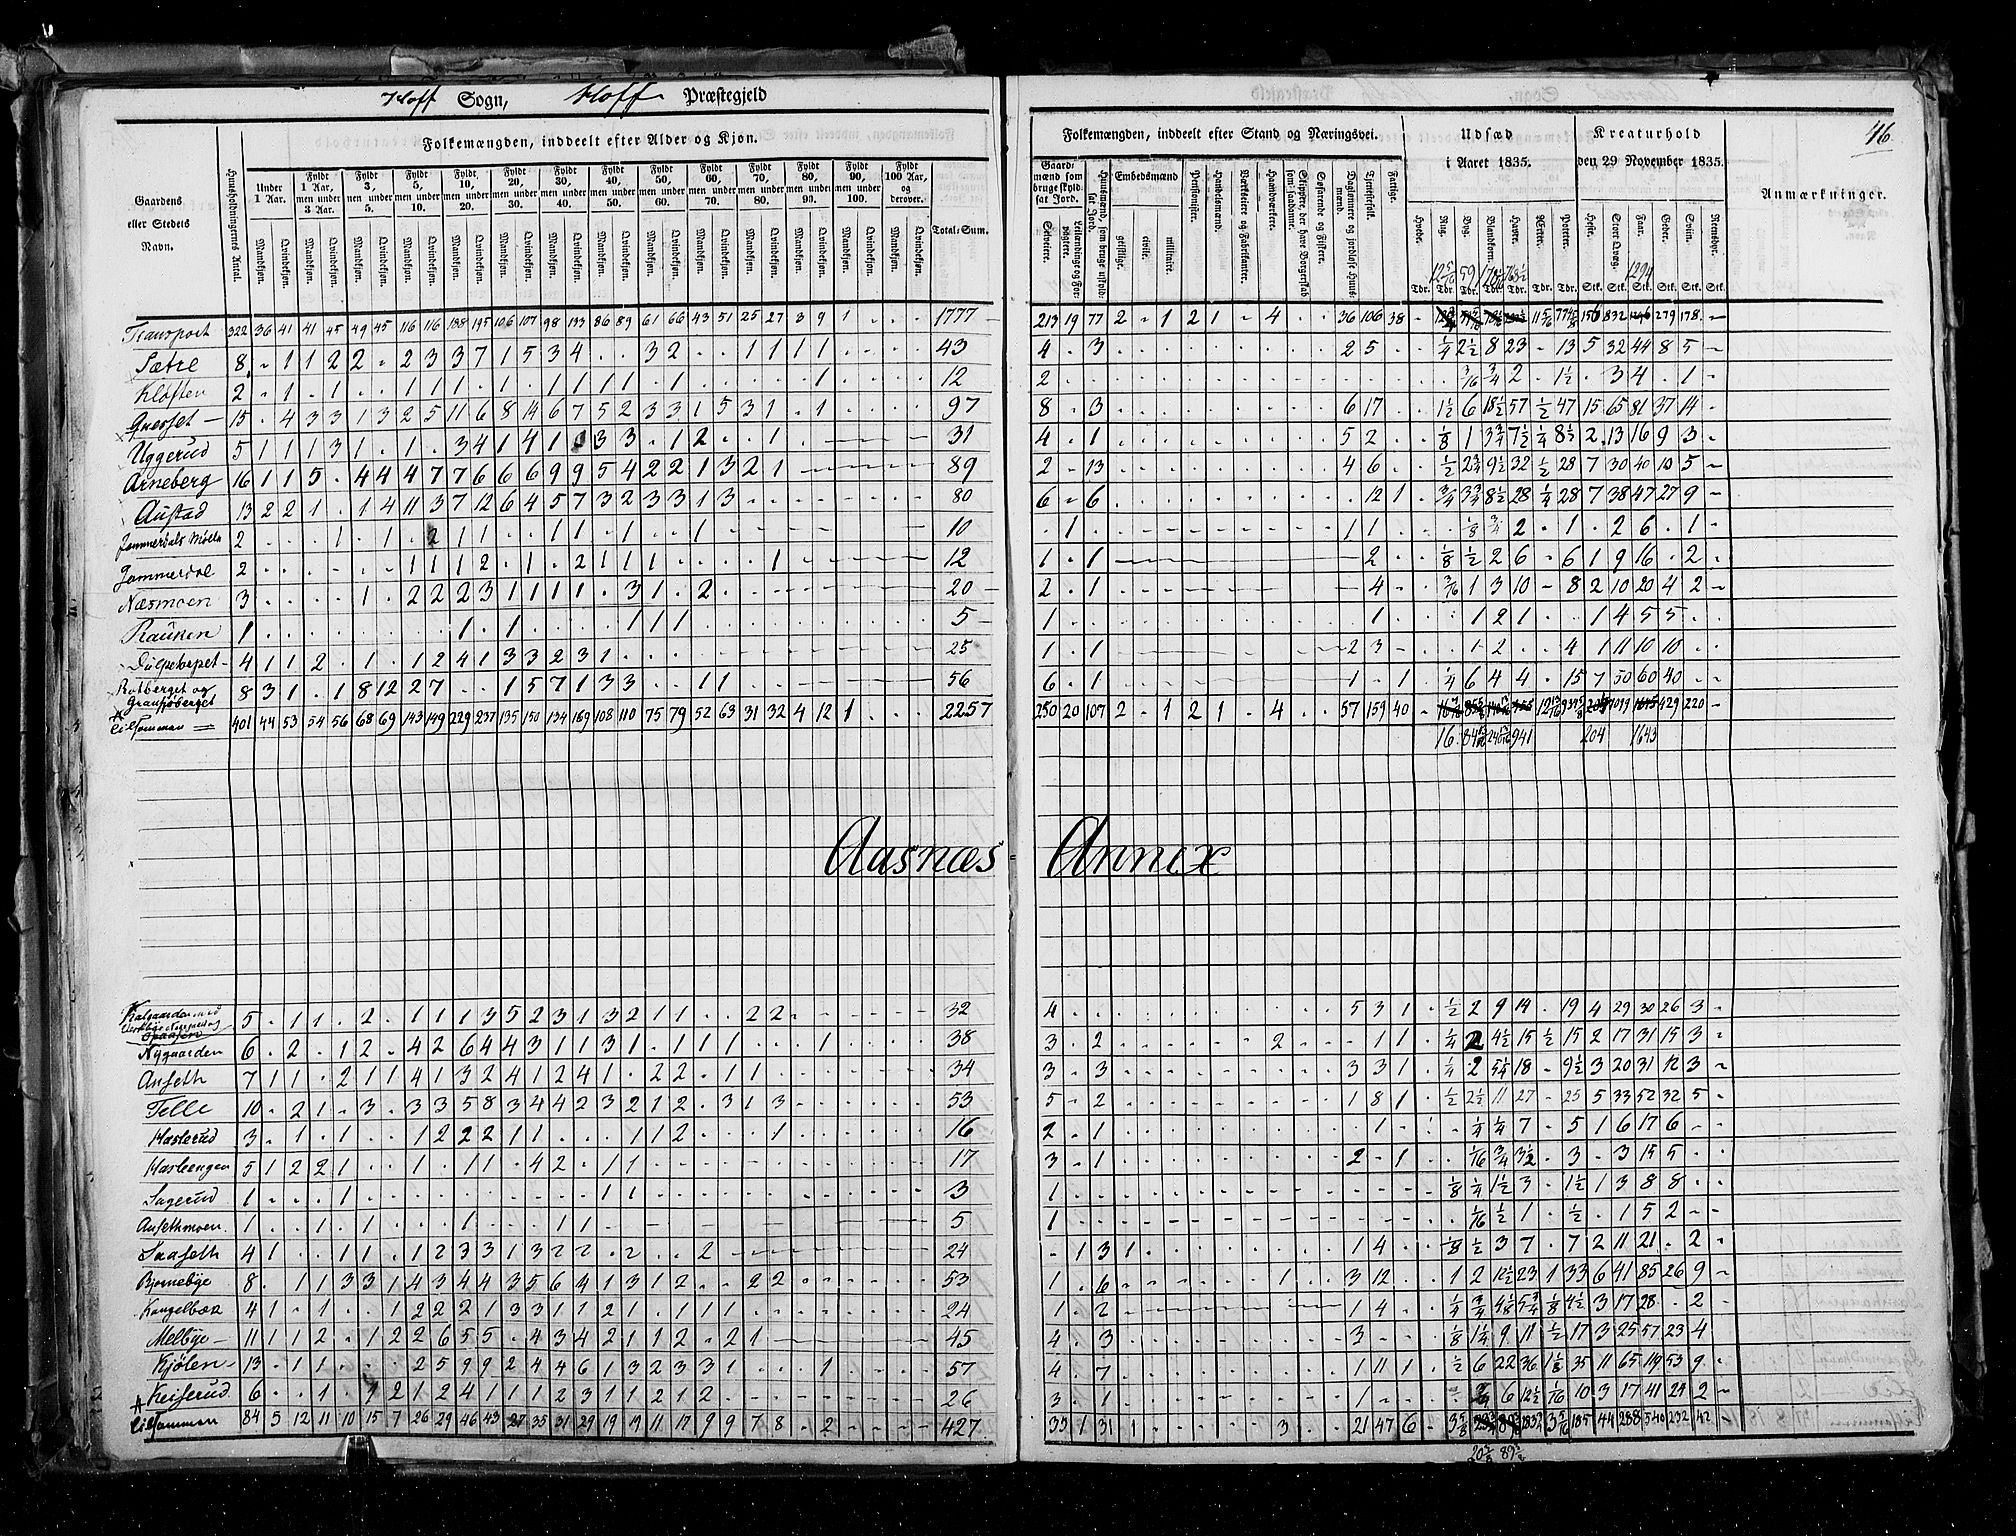 Hoff Sogn, Hoff Præstegjeld
46
Gaardens eller Stedets Navn.
Huusholdningernes Antal.
Folkemængden, inddeelt efter Alder og Kjøn.
Under 1 Aar.
Fyldt 1 Aar, men under 3 Aar.
Fyldt 3, men under 5.
Fyldt 5, men under 10.
Fyldt 10, men under 20.
Fyldt 20, men under 30.
Fyldt 30, men under 40.
Fyldt 40, men under 50.
Fyldt 50, men under 60.
Fyldt 60, men under 70.
Fyldt 70, men under 80.
Fyldt 80, men under 90.
Fyldt 90, men under 100.
Fyldt 100 Aar, og derover.
Mandkjøn. Qvindekjøn.
Total-Sum.
Folkemængden, inddeelt efter Stand og Næringsvei.
Gaardmænd som bruge skyldsat Jord.
Selveiere.
Leilændinge og Forpagtere.
Huusmænd, som bruge uskyldsat Jord.
Embedsmænd
geistlige.
civile.
militaire.
Pensionister.
Handelsmænd.
Værkeiere og Fabrikanter.
Haandværkere.
Skippere, der have Borgerskab som saadanne.
Søfarende og Fiskere.
Dagleiere og jordløse Huusmænd.
Tjenestefolk.
Fattige.
Udsæd i Aaret 1835.
Hvede. Rug. Byg. Blandkorn. Havre. Ærter. Poteter.
Tdr. Tdr. Tdr. Tdr. Tdr. Tdr. Tdr.
Kreaturhold den 29 November 1835.
Heste. Stort Qvæg. Faar. Geder. Sviin. Rensdyr.
Stk. Stk. Stk. Stk. Stk. Stk.
1294
Anmærkninger.
Transport 322 36 41 41 45 49 45 116 116 188 195 106 107 98 133 86 89 61 66 43 51 25 27 3 9 1 1777 213 19 77 2 1 2 1 4 36 106 38 832 279 178
Sætre 8 1 1 2 2 2 3 3 7 1 5 3 4 3 2 1 1 1 1 43 4 3 2 5 1/4 2 1/2 8 23 13 5 32 44 8 5
Kløften 2 1 1 1 1 1 1 1 1 1 1 1 1 12 2 3/16 3/4 2 1 1/2 3 4 1
Gresset 15 4 3 3 1 3 2 5 11 6 8 14 6 7 5 2 3 3 1 5 3 1 1 97 8 3 6 17 1 1/2 6 18 1/2 57 1/2 47 15 65 81 37 14
Uggerud 5 1 1 1 3 1 1 3 4 1 4 1 3 3 1 2 1 31 4 1 5 2 1/8 1 3 3/4 7 1/2 1/4 8 1/2 2 13 16 9 3
Arneberg 16 1 1 5 4 4 4 7 7 6 6 6 9 9 5 4 2 2 1 3 2 1 89 2 13 4 6 1/2 2 3/4 9 1/2 32 1/2 28 7 30 40 10 5
Austad 13 2 2 1 1 4 11 3 7 12 6 4 5 7 3 2 3 3 1 3 80 6 6 12 1 3/4 3 3/4 8 1/2 28 1/4 28 7 38 47 27 9
Jammerdals Mølle 2 1 1 2 1 1 1 1 1 1 10 1 1 1 1/8 3/4 2 1 2 6 1
Jammerdal 2 1 1 1 2 1 2 1 1 1 1 12 1 1 2 1/8 1/2 2 6 6 1 9 16 2
Næsmoen 3 1 2 2 2 3 1 1 1 1 3 1 2 20 2 1 4 3/16 1 3 10 8 2 10 20 4 2
Rauken 1 1 1 1 1 1 5 1 1 1 2 1 1 4 5 5
Dulpetorpet 4 1 1 2 1 1 2 4 1 3 3 2 3 1 25 1 1 2 3 1 2 4 1 11 10 10
Rotberget og Grausjøberget 8 3 1 1 8 12 2 7 1 5 7 1 3 3 1 1 56 6 1 1 1 1/4 6 4 4 15 7 50 60 40
Tilsammen 401 44 53 54 56 68 69 143 149 229 237 135 150 134 169 108 110 75 79 52 63 31 32 4 12 1 2257 250 20 107 2 1 2 1 4 57 159 40 1099 429 220
16 941 204 1643
Aasnæs Annex
5 1 1 2 1 1 1 3 5 2 3 1 3 2 1 1 2 2 32 4 5 3 1 1/2 2 9 14 19 4 29 30 26 3
Nygaarden 6 2 1 2 4 2 6 4 4 3 1 1 3 1 1 1 1 1 38 3 2 2 1 1 1/4 2 4 1/2 15 1/2 15 2 17 31 15 3
Anseth 7 1 1 2 1 1 4 1 3 2 4 1 2 4 1 2 2 1 1 34 3 3 3 3 1 1/4 2 5 1/4 18 9 1/2 3 20 31 12 3
Telle 10 2 1 3 3 3 5 8 3 4 4 2 3 2 1 2 3 1 3 53 5 2 1 8 1 1/2 2 1/2 11 27 25 5 33 52 32 5
Haslerud 3 1 1 1 2 2 2 1 1 1 1 2 1 16 2 1 1 1/4 1/4 7 5 1 6 17 6
Hasleengen 5 1 2 2 1 1 1 1 4 2 1 1 17 3 1 2 1 1/16 3/4 3 1/2 3 3 15 5
Sagerud 1 1 1 1 3 1 1/8 1/4 1 1/2 3 1 1/2 1 3 8 8
Ansethmoen 1 1 1 1 1 1 5 1 1/16 1/2 1 1/2 1 5 2
Saaseth 4 1 1 1 1 2 3 3 1 3 2 2 2 2 24 1 3 1 1 4 1/8 1/2 3 7 7 2 11 21 2
Bjørnebye 8 1 1 3 3 1 4 3 4 4 3 5 6 4 1 3 1 2 2 2 53 1 6 1 3 12 1 2 12 1/2 23 1 33 6 41 85 26 9
Kangelbæk 4 1 1 1 2 2 2 1 3 3 1 1 2 1 1 1 1 24 1 2 1 4 1/4 3/4 4 1/8 5 3/4 1/8 4 1/2 3 17 28 2
Melbye 11 1 1 2 1 2 2 6 5 5 4 3 4 2 1 1 2 2 1 45 4 3 3 1/8 1 1/4 9 11 1/2 17 3 25 57 23 4
Kjølen 13 1 1 2 5 9 9 2 4 4 6 1 3 2 3 3 1 1 57 4 7 1 11 1 1/2 6 22 36 1 1/8 35 11 65 119 53 9
Keiserud 6 1 1 2 1 2 4 1 1 1 2 3 1 1 2 1 2 26 3 1 1 6 12 1/2 1/16 10 3 17 41 24 2
Tilsammen 84 5 12 11 10 15 7 26 29 46 43 27 35 31 29 19 19 11 17 9 9 7 8 2 427 33 1 31 1 3 21 47 6 185 44 288 540 232 42